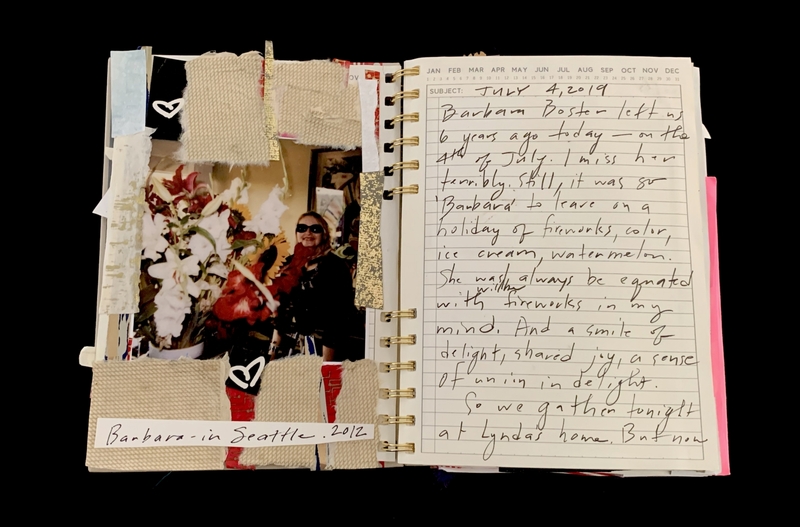 Barbara - in Seattle. 2012
JAN FEB MAR APR MAY JUN JUL AUG SEP OCT NOV DEC
SUBJECT: JULY 4, 2019
Barbara Boster left us
6 years ago today — on the
4th of July. I miss her
terribly. Still, it was so
'Barbara' to leave on a
holiday of fireworks, color,
ice cream, watermelon.
She will always be equated
with fireworks in my
mind. And a smile of
delight, shared joy, a sense
of union in delight.
So we gather tonight
at Lynda's home. But now